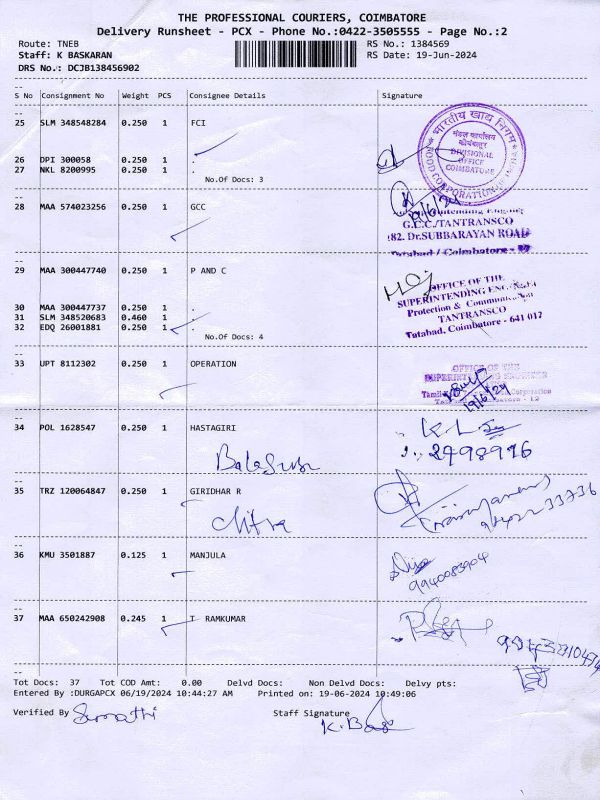 THE PROFESSIONAL COURIERS, COIMBATORE
Delivery Runsheet - PCX - Phone No.:0422-3505555 - Page No.:2
Route: TNEB
RS No.: 1384569
Staff: K BASKARAN
RS Date: 19-Jun-2024
DRS No.: DCJB138456902
S No Consignment No Weight PCS Consignee Details Signature
25 SLM 348548284 0.250 1 FCI
26 DPI 300058 0.250 1 .
27 NKL 8200995 0.250 1 .
No.Of Docs: 3
भारतीय खाद्य निगम
मंडल कार्यालय
कोयंबतूर
DIVISIONAL
OFFICE
COIMBATORE
FOOD CORPORATION OF INDIA
28 MAA 574023256 0.250 1 GCC
19/6/24
G.C.C./TANTRANSCO
182, Dr.SUBBARAYAN ROAD
Tatabad / Coimbatore - 12
29 MAA 300447740 0.250 1 P AND C
30 MAA 300447737 0.250 1 .
31 SLM 348520683 0.460 1 .
32 EDQ 26001881 0.250 1 .
No.Of Docs: 4
OFFICE OF THE
SUPERINTENDING ENGINEER
Protection & Communication
TANTRANSCO
Tatabad, Coimbatore - 641 012
33 UPT 8112302 0.250 1 OPERATION
OFFICE OF THE
SUPERINTENDING ENGINEER
19/6/24
34 POL 1628547 0.250 1 HASTAGIRI
Balasubu
2498976
35 TRZ 120064847 0.250 1 GIRIDHAR R
Chitra
36 KMU 3501887 0.125 1 MANJULA
9940083904
37 MAA 650242908 0.245 1 T RAMKUMAR
Tot Docs: 37 Tot COD Amt: 0.00 Delvd Docs: Non Delvd Docs: Delvy pts:
Entered By :DURGAPCX 06/19/2024 10:44:27 AM Printed on: 19-06-2024 10:49:06
Verified By Sumathi
Staff Signature K. Bas